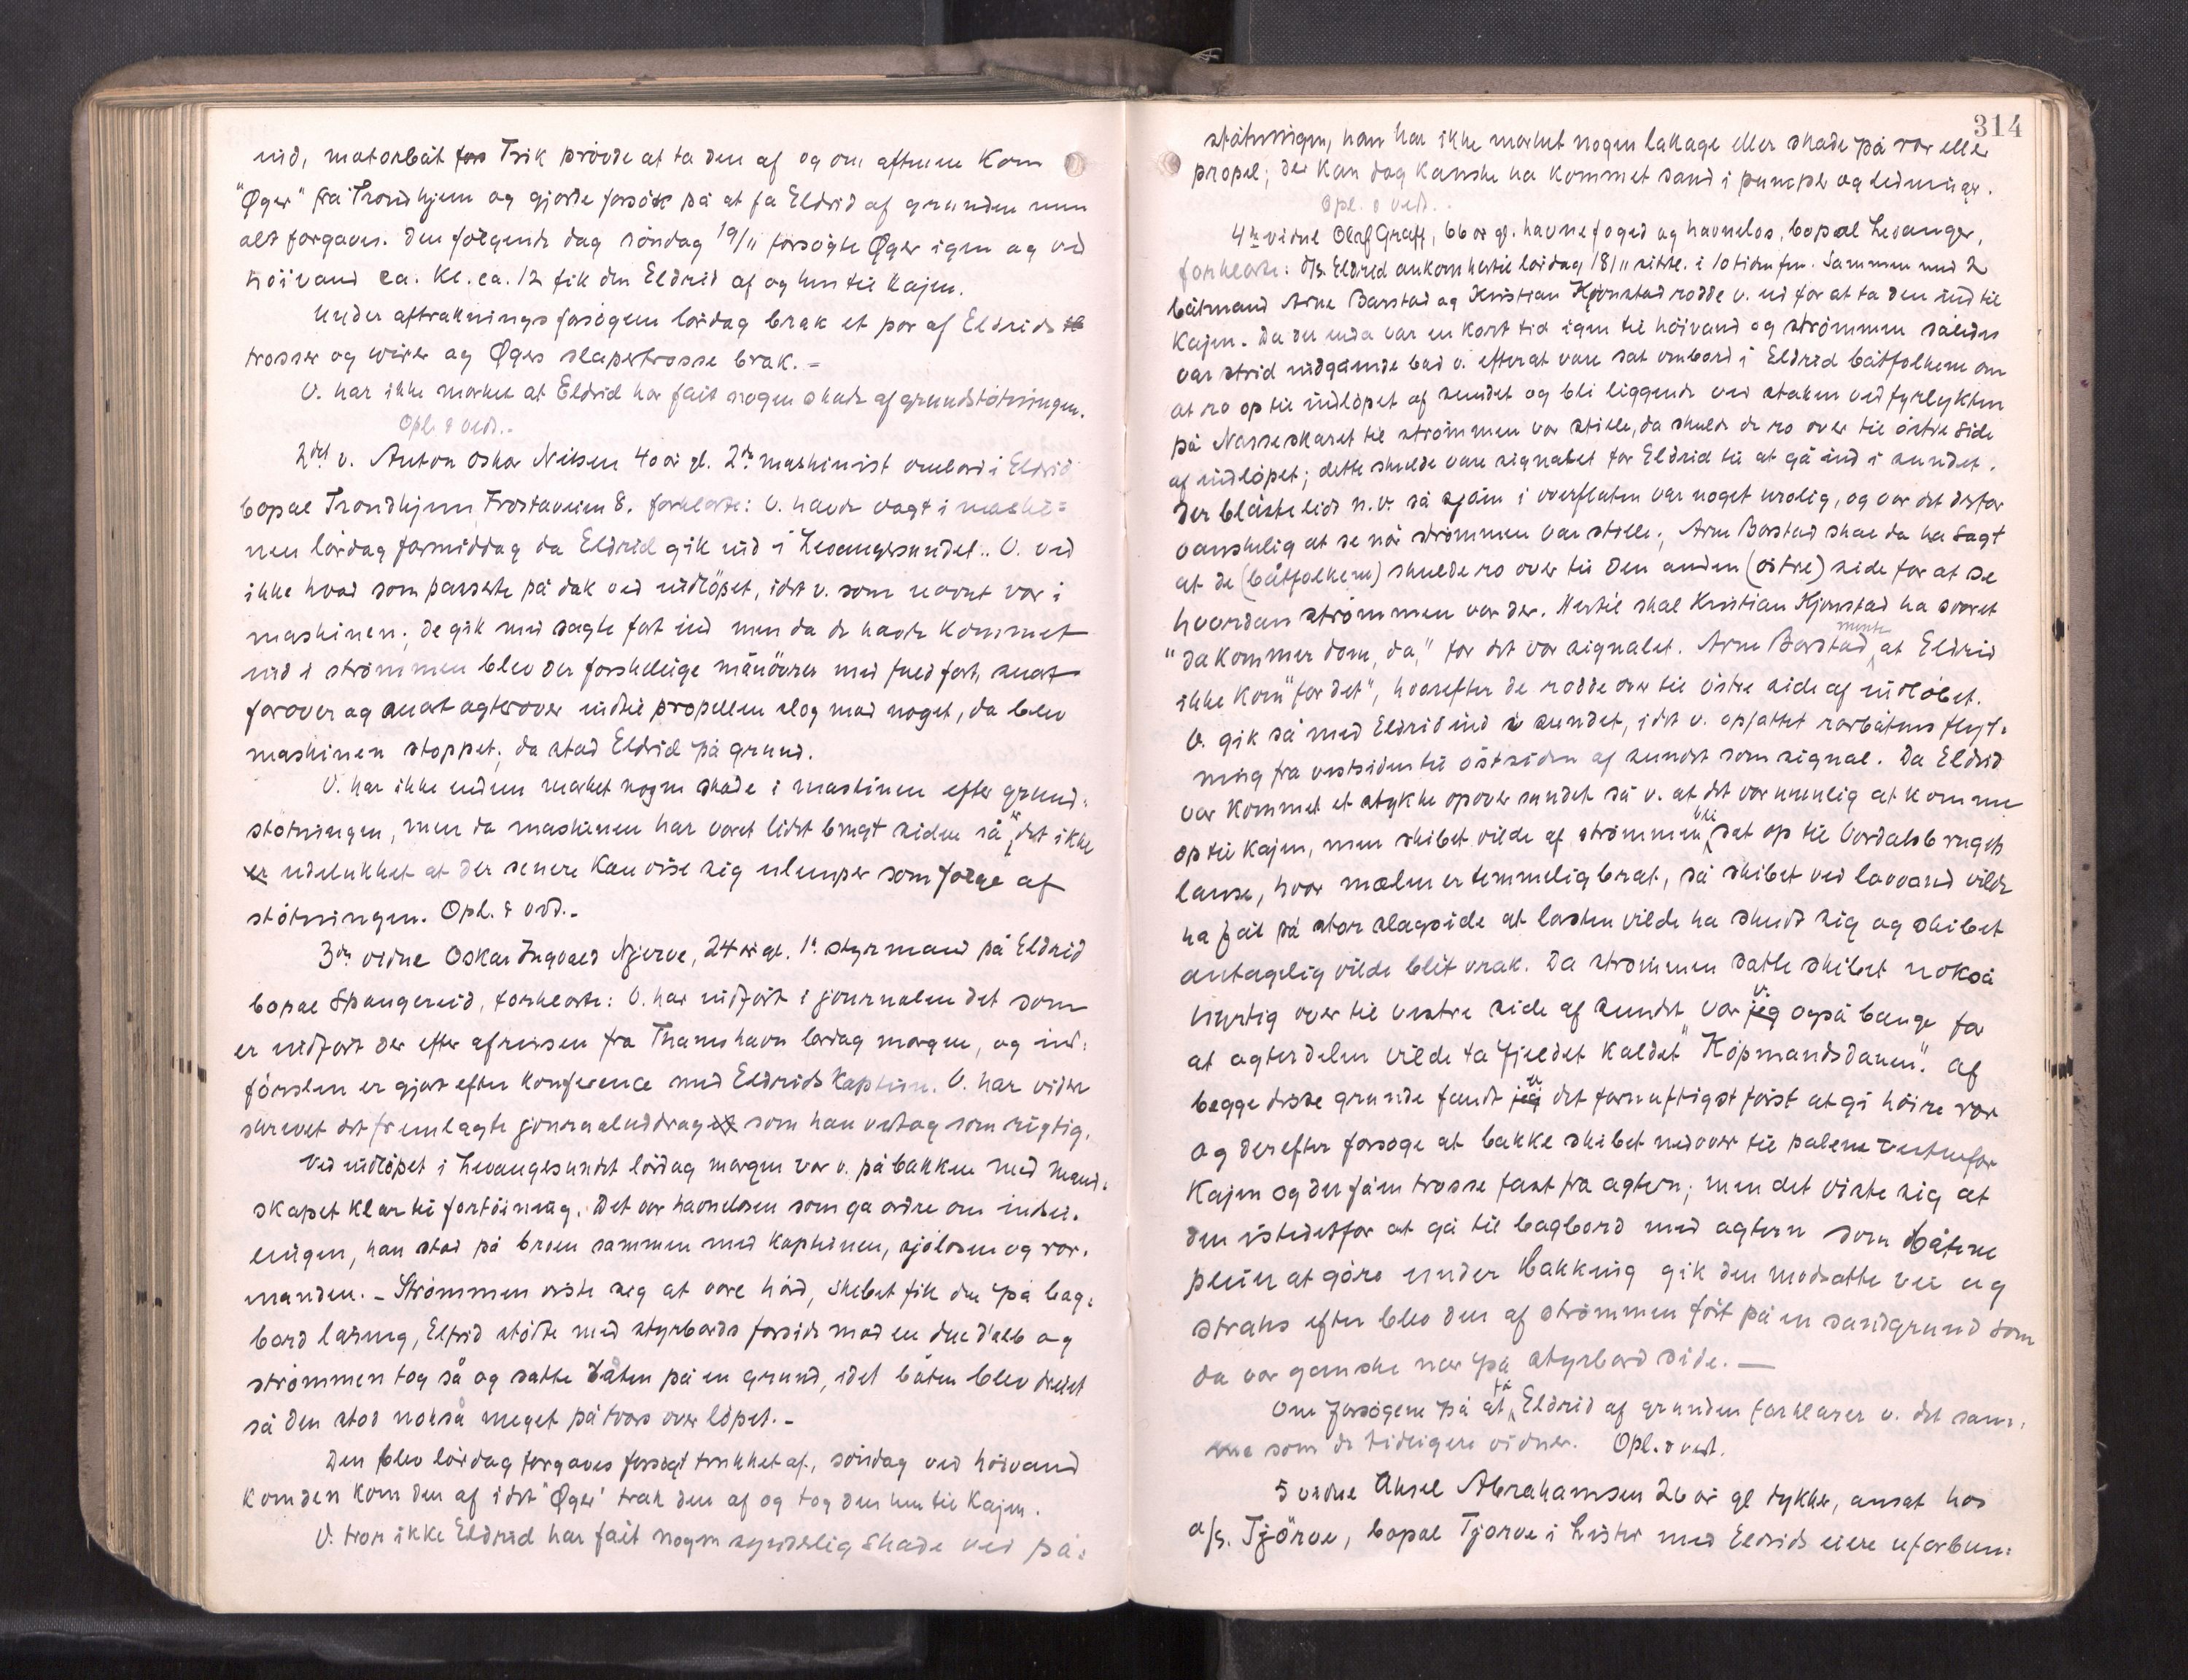 ind, motorbåt Trik prövde at ta den af og om aftenen kom
"Öger" fra Trondhjem og gjorde forsök på at fa Eldrid af grunden men
alt forgæves. Den fölgende dag söndag 19/11 forsögte Öger igen og ved
höivand ca. Kl. ca. 12 fik den Eldrid af og hen til kajen.
Under aftrækningsforsögene lördag brak et par af Eldrids
trosser og wirer og Ögers slæpertrosse brak. –
V. har ikke mærket at Eldrid har fåit nogen skade af grundstötningen.
Opl. & vedt..
2det v. Anton Oskar Nilsen 40 år gl. 2den maskinist ombord i Eldrid
bopæl Trondhjem Frostaveien 8. forklarte: V. havde vagt i maski=
nen lördag formiddag da Eldrid gik ind i Levangersundet.. V. ved
ikke hvad som passerte på dæk ved indlöpet, idet v. som nævnt var i
maskinen; de gik med sagte fart ind men da de havde kommet
ind i strömmen blev der forskellige manöverer med fuld fart, snart
forover og snart agterover indtil propellen slog mod noget, da blev
maskinen stoppet; da stod Eldrid på grund.
V. har ikke siden mærket nogen skade i maskinen efter grund=
stötningen, men da maskinen har været lidet brugt siden så er det ikke
er udelukket at der senere kan vise sig ulemper som fölge af
stötningen. Opl. & vedt.-
3die vidne Oskar Ingvald Njerve, 24 år gl. 1ste styrmand på Eldrid
bopæl Spangereid, forklarte: V. har indfört i journalen det som
er indfört der efter afreisen fra Thamshavn lördag morgen, og ind=
förslen er gjort efter konference med Eldrids kaptein. V. har videre
skrevet det fremlagte journaluddrag som han vedtog som rigtig.
Ved indlöpet i Levangersundet lördag morgen var v. på bakken med mand=
skapet klar til fortöining. Det var havnelosen som ga ordre om indsei=
lingen, han stod på broen sammen med kapteinen, sjölosen og ror=
manden. – Strömmen viste sig at være hård, skibet fik den på bag=
bord låring, Eldrid stötte med styrbords forside mod en duc d'alb og
strömmen tog så og satte båten på en grund, idet båten blev dreiet
så den stod nokså meget på tvers over löpet. –
Den blev lördag forgæves forsögt trukket af, söndag ved höivand
kom den kom den af idet "Öger" trak den af og tog den hen til kajen.
V. tror ikke Eldrid har fåit nogen synderlig skade ved på=
314
stötningen, han har ikke mærket nogen lækage eller skade på ror eller
propel; der kan dog kanske ha kommet sand i pumper og ledninger.
Opl. & vedt..
4de vidne Olaf Graff, 66 år gl. havnefoged og havnelos, bopæl Levanger,
forklarte: D/S. Eldrid ankom hertil lördag 18/11 sidstl. i 10 tiden fm. Sammen med 2
båtmænd Arne Barstad og Kristian Hjemstad rodde v. ud for at ta den ind til
kajen. Da der enda var en kort tid igen til höivand og strömmen således
var strid indgående bad v. efterat være sat ombord i Eldrid båtfolkene om
at ro op til indlöpet af sundet og bli liggende ved staken ved fyrlykten
på Nesseskaret til strömmen var stille, da skulde de ro over til östre side
af indlöpet; dette skulde være signalet for Eldrid til at gå ind i sundet.
Der blåste lidt n.v. så sjöen i overflaten var noget urolig, og var det derfor
vanskelig at se når strömmen var stille; Arne Barstad skal da ha sagt
at de (båtfolkene) skulde ro over til den anden (östre) side for at se
hvordan strömmen var der. Hertil skal Kristian Hjemstad ha svaret
"da kommer dom, da," for det var signalet. Arne Barstad mente at Eldrid
ikke kom "for det", hvorefter de rodde over til östre side af indlöbet.
V. gik så med Eldrid ind i sundet, idet v. opfattet rorbåtens flyt=
ning fra vestsiden til östsiden af sundet som signal. Da Eldrid
var kommet et stykke opover sundet så v. at det var umulig at komme
op til kajen, men skibet vilde af strömmen bli sat op til Verdalsbrugets
lænse, hvor mælen er temmelig brat, så skibet ved lavvand vilde
ha fåt så stor slagside at lasten vilde ha skudt sig og skibet
antagelig vilde blit vrak. Da strömmen satte skibet nokså
hurtig over til vestre side af sundet var v. også bange for
at agterdelen vilde ta fjeldet kaldet "Köpmandsdauen". Af
begge disse grunde fandt v. det fornuftigst först at gi höire ror
og derefter forsöge at bakke skibet nedover til pælene vestenfor
kajen og der få en trosse fast fra agteren; men det viste sig at
den istedetfor at gå til bagbord med agtern som båtene
pleier at göre under bakking gik den modsatte vei og
straks efter blev den af strömmen fört på en sandgrund som
da var ganske nær på styrbord side. —
Om forsögene på at få Eldrid af grunden forklarer v. det sam=
me som de tidligere vidner. Opl. & vedt.
5 vidne Aksel Abrahamsen 26 år gl dykker, ansat hos
a/s. Tjörve, bopæl Tjorve i Lister med Eldrids eiere uforbun=